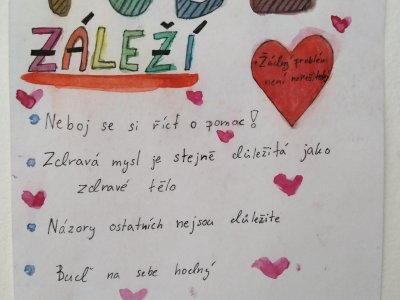 ZÁLEŽÍ
Žádný problém
není neřešitelný
Neboj se si říct o pomoc!
Zdravá mysl je stejně důležitá jako
zdravé tělo
Názory ostatních nejsou důležité
Buď na sebe hodný